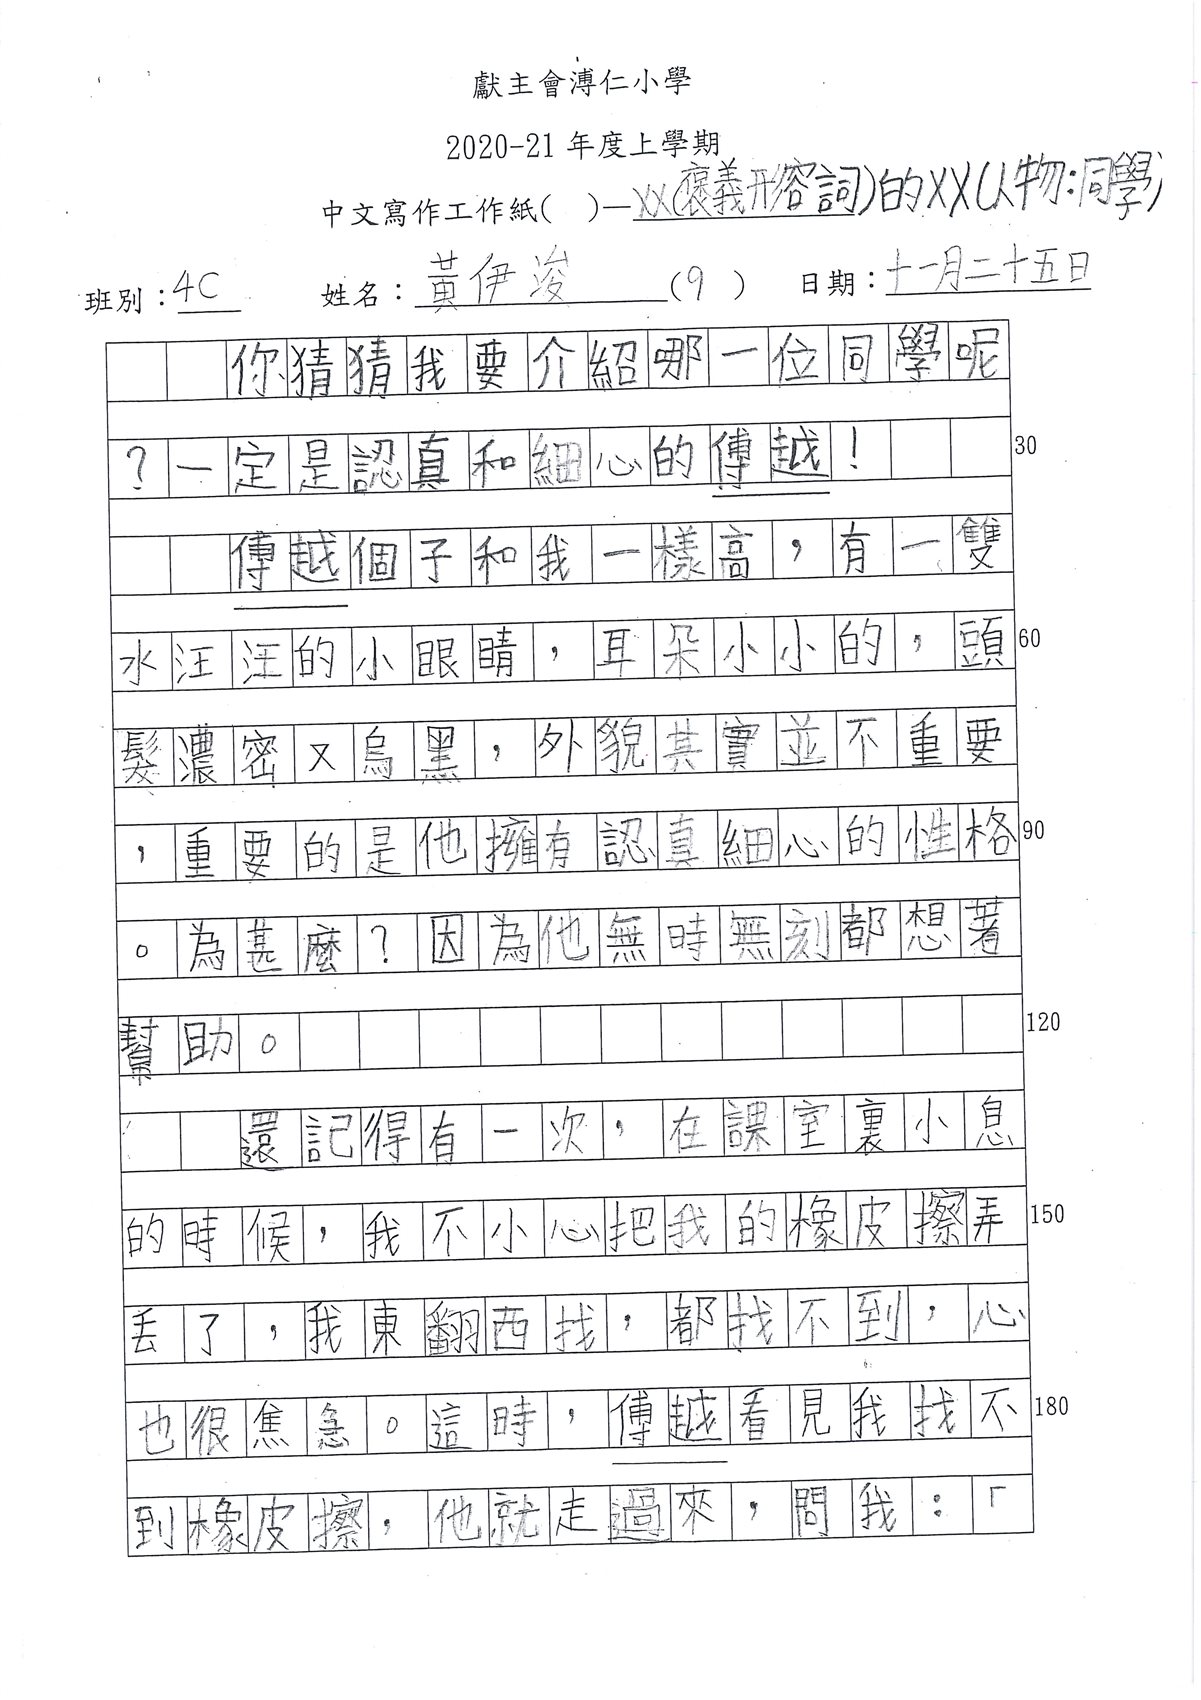 獻主會溥仁小學
2020-21 年度上學期
中文寫作工作紙( )—XX(褒義形容詞)的XX(人物:同學)
班別:4C 姓名:黃伊浚(9) 日期:十一月二十五日
你猜猜我要介紹哪一位同學呢
?一定是認真和細心的傅越! 30
傅越個子和我一樣高,有一雙
水汪汪的小眼睛,耳朵小小的,頭 60
髮濃密又烏黑,外貌其實並不重要
,重要的是他擁有認真細心的性格 90
。為甚麼?因為他無時無刻都想著
幫助。 120
還記得有一次,在課室裏小息
的時候,我不小心把我的橡皮擦弄 150
丟了,我東翻西找,都找不到,心
也很焦急。這時,傅越看見我找不 180
到橡皮擦,他就走過來,問我:「